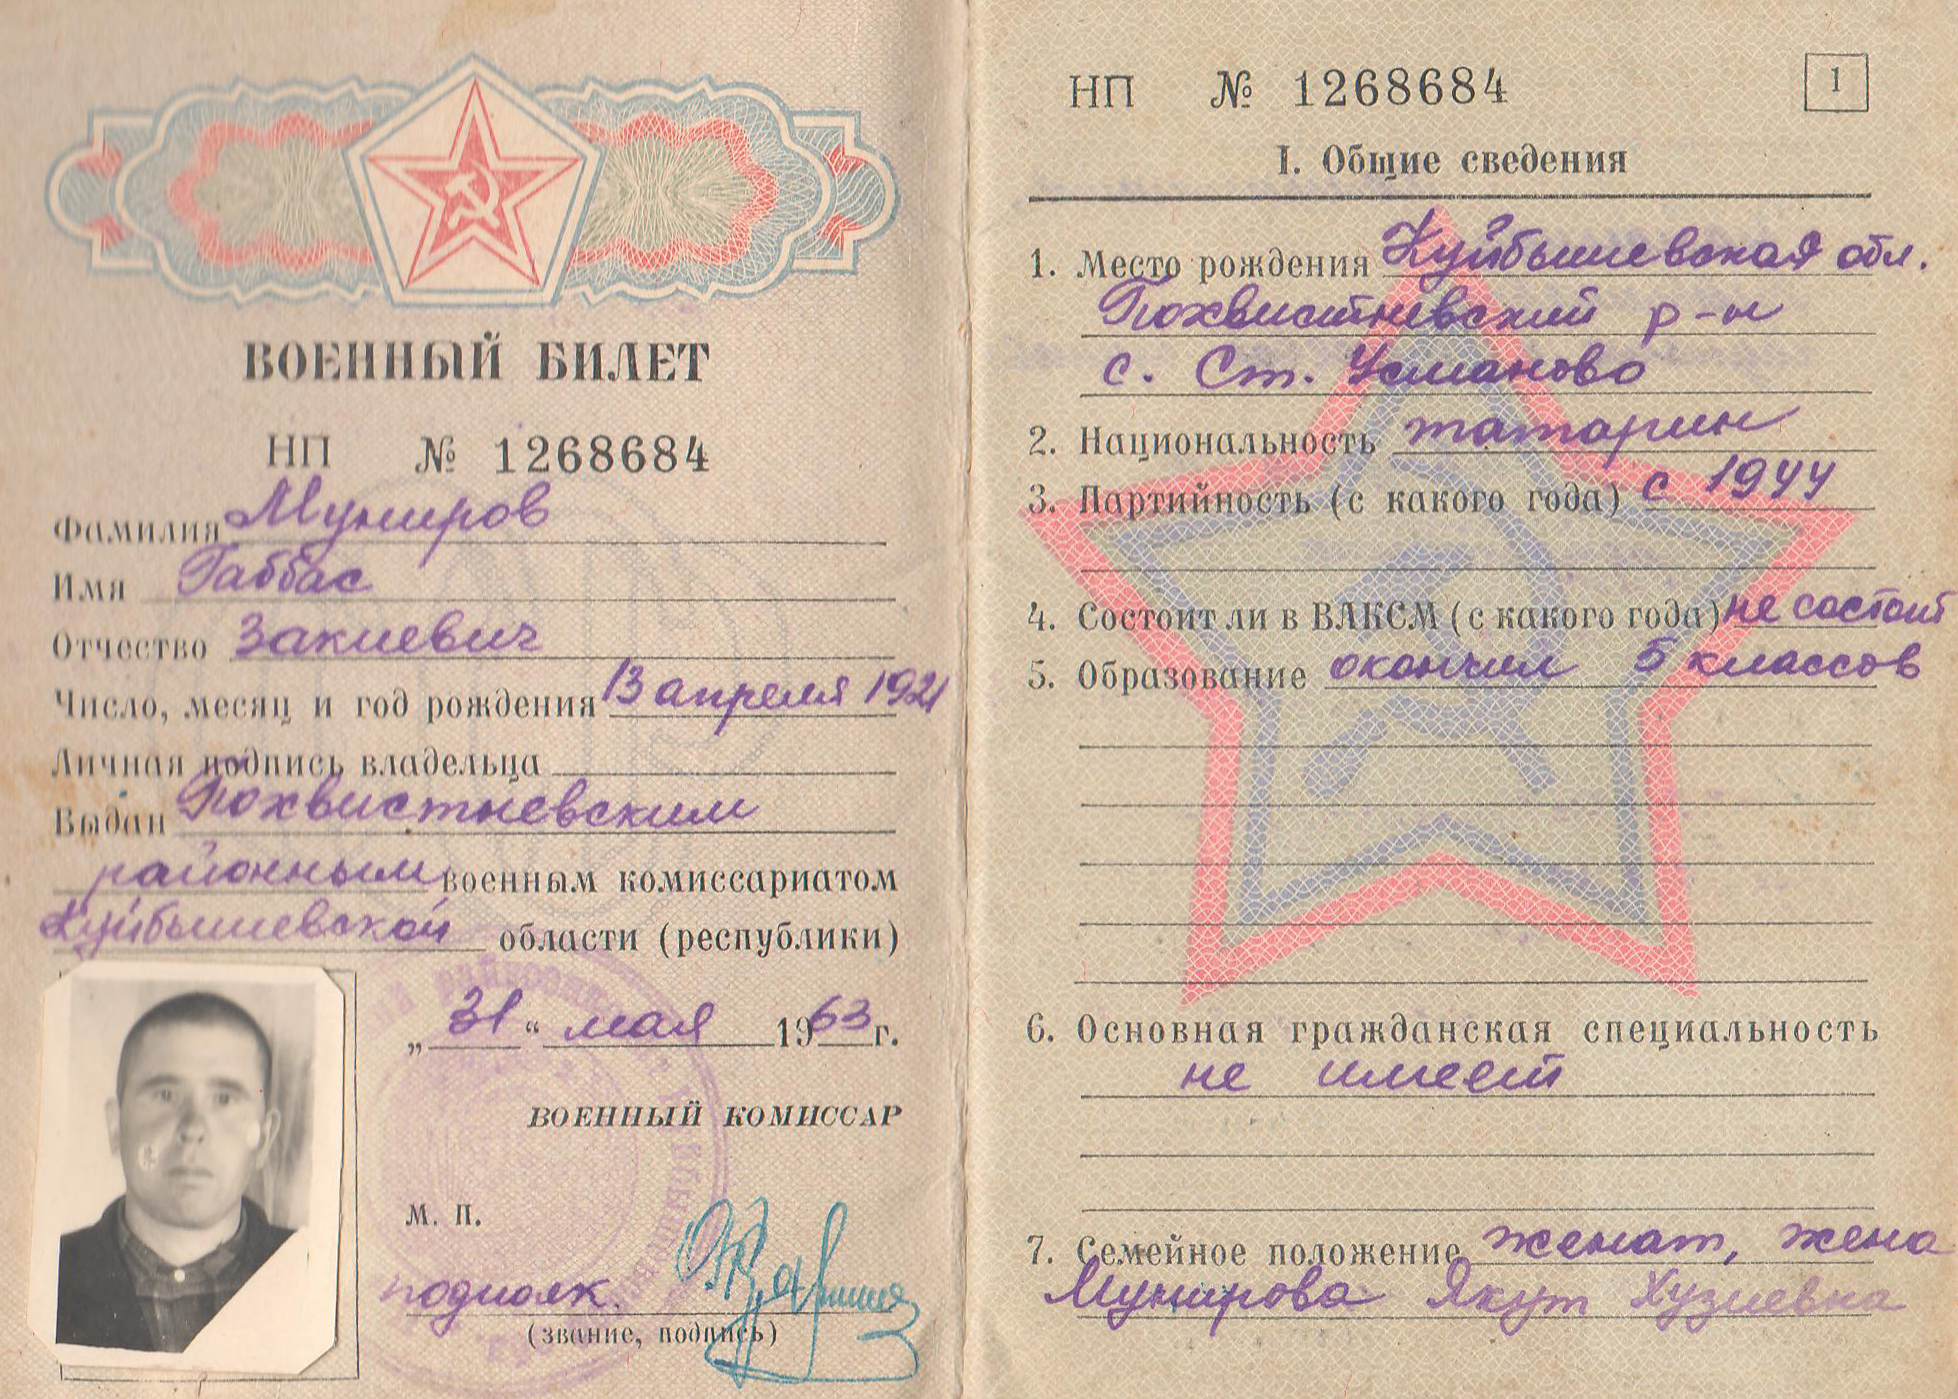 ВОЕННЫЙ БИЛЕТ
НП № 1268684
Фамилия Муниров
Имя Габбас
Отчество Закиевич
Число, месяц и год рождения 13 апреля 1921
Личная подпись владельца
Выдан Похвистневским
районным военным комиссариатом
Куйбышевской области (республики)
„31“ мая 1963 г.
ВОЕННЫЙ КОМИССАР
М. П.
подполк.
(звание, подпись)
НП № 1268684
1
I. Общие сведения
1. Место рождения Куйбышевская обл.
Похвистневский р-н
с. Ст. Усманово
2. Национальность татарин
3. Партийность (с какого года) с 1944
4. Состоит ли в ВЛКСМ (с какого года) не состоит
5. Образование окончил 5 классов
6. Основная гражданская специальность
не имеет
7. Семейное положение женат, жена
Мунирова Якут Хузиевна